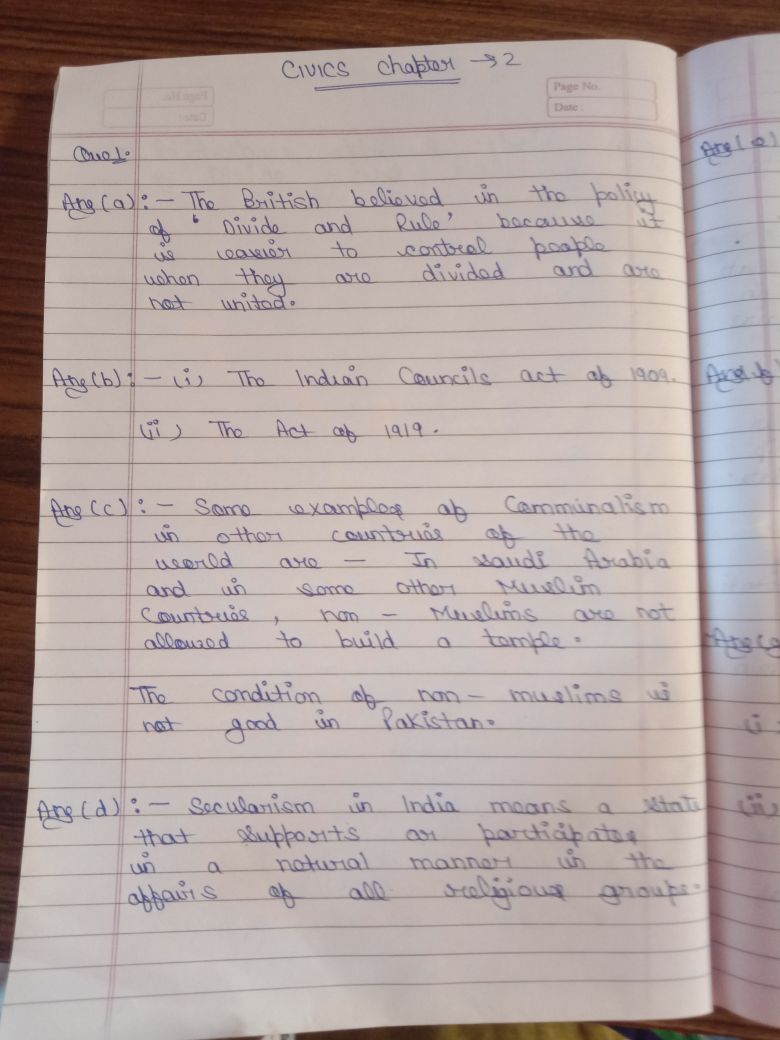 CIVICS Chapter → 2
Page No.
Date :
Que 1.
Ans (a) : - The British believed in the policy
of 'Divide and Rule' because it
is easier to control people
when they are divided and are
not united.
Ans (b) : - (i) The Indian Councils act of 1909.
(ii) The Act of 1919.
Ans (c) : - Some examples of Communalism
in other countries of the
world are - In saudi Arabia
and in some other Muslim
Countries, non - Muslims are not
allowed to build a temple.
The condition of non - muslims is
not good in Pakistan.
Ans (d) : - Secularism in India means a state
that supports or participates
in a natural manner in the
affairs of all religious groups.
Ans (e)
(i)
(ii)